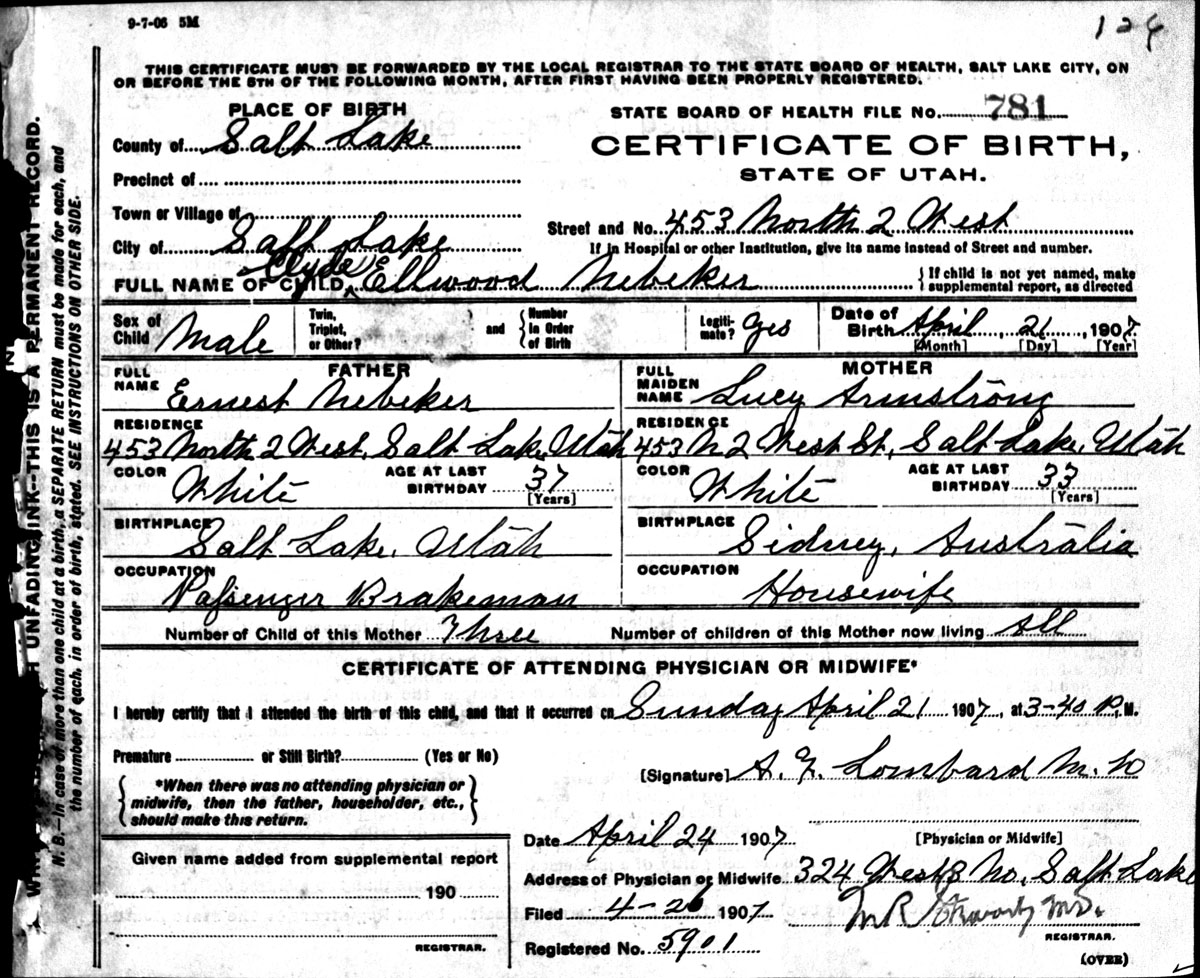 9-7-06 5M
124
THIS CERTIFICATE MUST BE FORWARDED BY THE LOCAL REGISTRAR TO THE STATE BOARD OF HEALTH, SALT LAKE CITY, ON
OR BEFORE THE 5TH OF THE FOLLOWING MONTH, AFTER FIRST HAVING BEEN PROPERLY REGISTERED.
PLACE OF BIRTH
STATE BOARD OF HEALTH FILE No. 781
County of Salt Lake
CERTIFICATE OF BIRTH,
STATE OF UTAH.
Precinct of
Town or Village of
Street and No. 453 North 2 West
City of Salt Lake
If in Hospital or other Institution, give its name instead of Street and number.
FULL NAME OF CHILD Clyde Ellwood Nebeker
{If child is not yet named, make
supplemental report, as directed
Sex of Child Male
Twin, Triplet, or Other?
and
{Number in Order of Birth
Legiti-mate? Yes
Date of Birth April, 21, 1907
[Month] [Day] [Year]
FATHER
MOTHER
FULL NAME Ernest Nebeker
FULL MAIDEN NAME Lucy Armstrong
RESIDENCE
453 North 2 West, Salt Lake, Utah
RESIDENCE
453 N 2 West St, Salt Lake, Utah
COLOR White
AGE AT LAST BIRTHDAY 37 [Years]
COLOR White
AGE AT LAST BIRTHDAY 33 [Years]
BIRTHPLACE
Salt Lake, Utah
BIRTHPLACE
Sidney, Australia
OCCUPATION
Passenger Brakeman
OCCUPATION
Housewife
Number of Child of this Mother Three
Number of children of this Mother now living All
CERTIFICATE OF ATTENDING PHYSICIAN OR MIDWIFE*
I hereby certify that I attended the birth of this child, and that it occurred on Sunday April 21 1907, at 3-40 P. M.
Premature or Still Birth? (Yes or No)
[Signature] A. F. Lombard M.D
{*When there was no attending physician or
midwife, then the father, householder, etc.,
should make this return.}
Date April 24 1907
[Physician or Midwife]
Given name added from supplemental report
190
REGISTRAR.
Address of Physician or Midwife 324 West 8 No, Salt Lake
Filed 4-26 1907
M.D.
REGISTRAR.
Registered No. 5901
(OVER)
UNFADING INK—THIS IS A PERMANENT RECORD.
N. B.—In case of more than one child at a birth, a SEPARATE RETURN must be made for each, and
the number of each, in order of birth, stated. SEE INSTRUCTIONS ON OTHER SIDE.